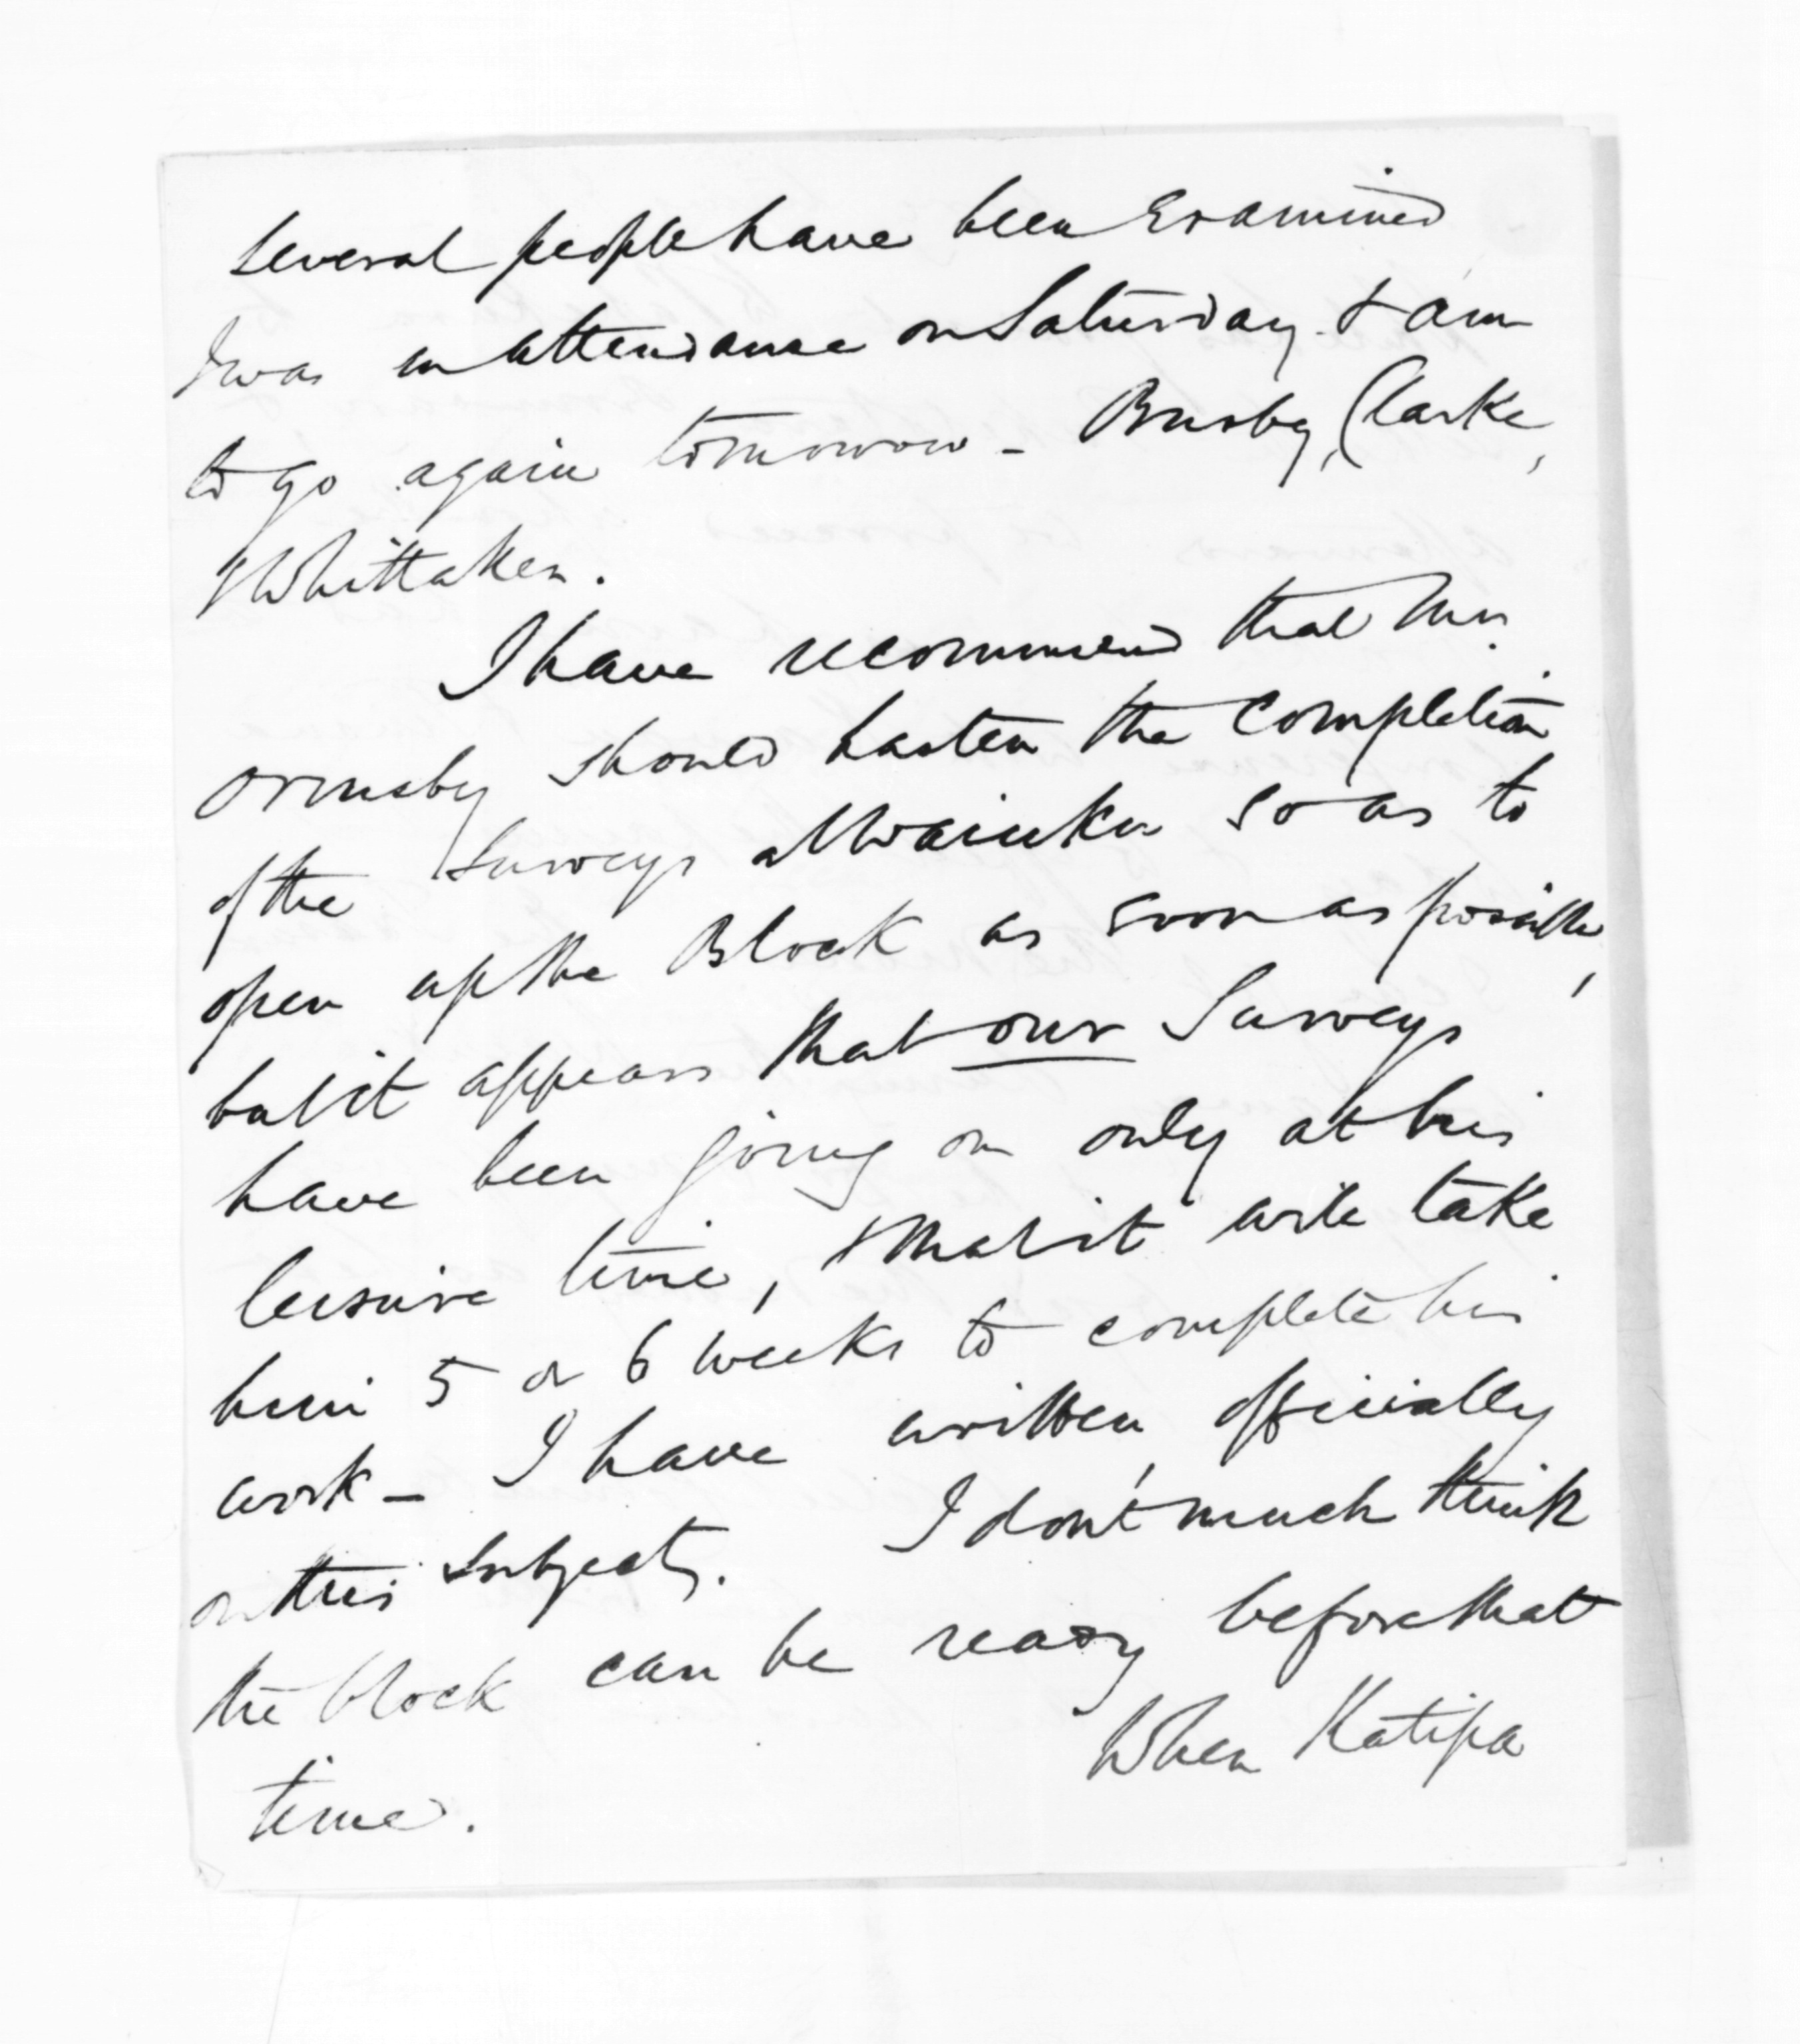 Several people have been Examined
I was in attendance on Saturday & am
to go again tomorrow - Busby, Clarke,
& Whittaker.
I have recommend that Mr.
Ormsby should hasten the Completion
of the Surveys at Waiuku so as to
open up the Block as soon as possible,
but it appears that our Surveys
have been going on only at his
leisure time, & that it will take
him 5 or 6 weeks to complete his
work - I have written officially
on this subject. I don't much think
the block can be ready before that
time. When Katipa